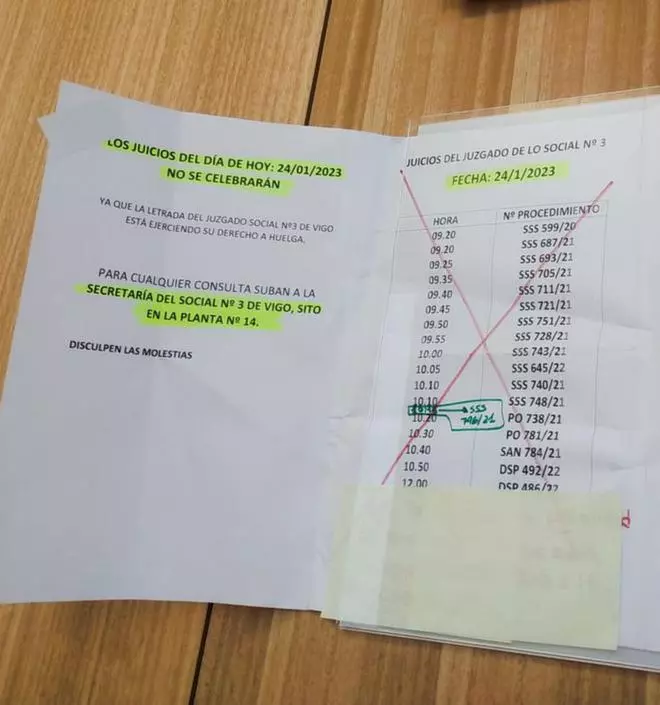 LOS JUICIOS DEL DÍA DE HOY: 24/01/2023
NO SE CELEBRARÁN
YA QUE LA LETRADA DEL JUZGADO SOCIAL Nº3 DE VIGO
ESTÁ EJERCIENDO SU DERECHO A HUELGA.
PARA CUALQUIER CONSULTA SUBAN A LA
SECRETARÍA DEL SOCIAL Nº 3 DE VIGO, SITO
EN LA PLANTA Nº 14.
DISCULPEN LAS MOLESTIAS
JUICIOS DEL JUZGADO DE LO SOCIAL Nº 3
FECHA: 24/1/2023
HORA Nº PROCEDIMIENTO
09.20 SSS 599/20
09.20 SSS 687/21
09.25 SSS 693/21
09.35 SSS 705/21
09.40 SSS 711/21
09.45 SSS 721/21
09.50 SSS 751/21
09.55 SSS 728/21
10.00 SSS 743/21
10.05 SSS 645/22
10.10 SSS 740/21
10.10 SSS 748/21
SSS
796/21
10.20 PO 738/21
10.30 PO 781/21
10.40 SAN 784/21
10.50 DSP 492/22
12.00 DSP 486/22